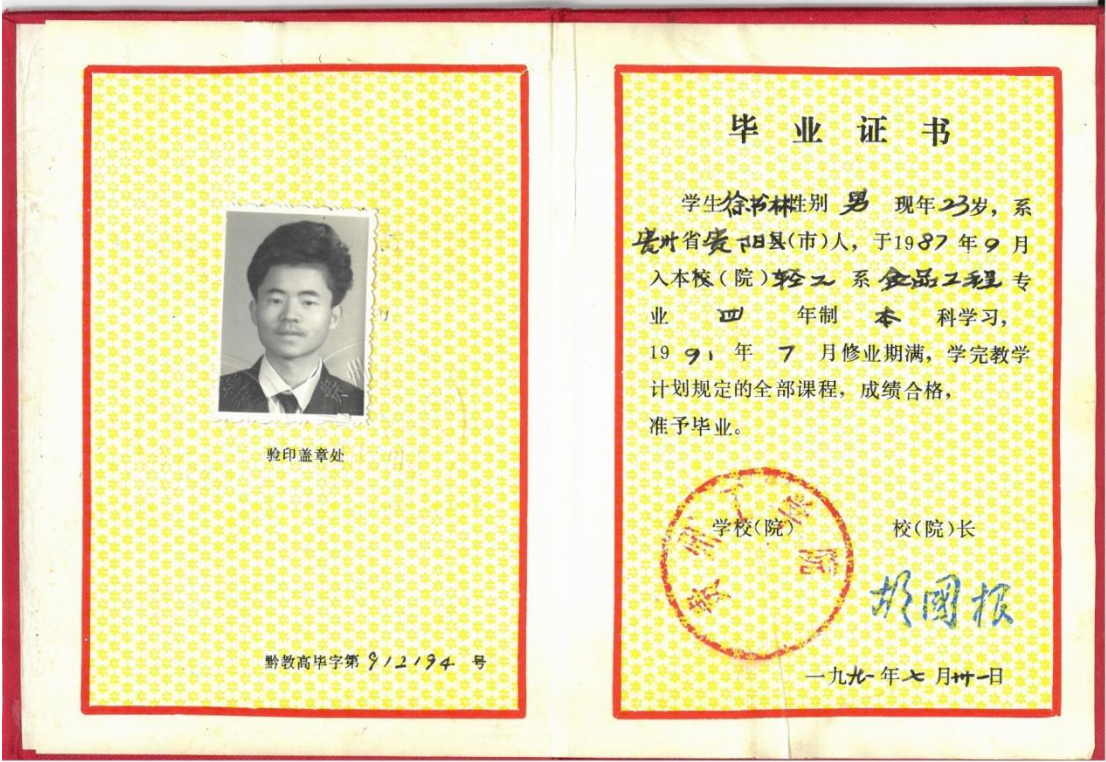 验印盖章处
黔教高毕字第912194号
毕业证书
学生徐书林性别 男 现年23岁，系
贵州省贵阳县(市)人，于1987年9月
入本校(院)轻工系食品工程专
业 四 年制 本 科学习，
1991年 7 月修业期满，学完教学
计划规定的全部课程，成绩合格，
准予毕业。
贵州工学院
学校(院) 校(院)长
胡國根
一九九一年七月卅一日